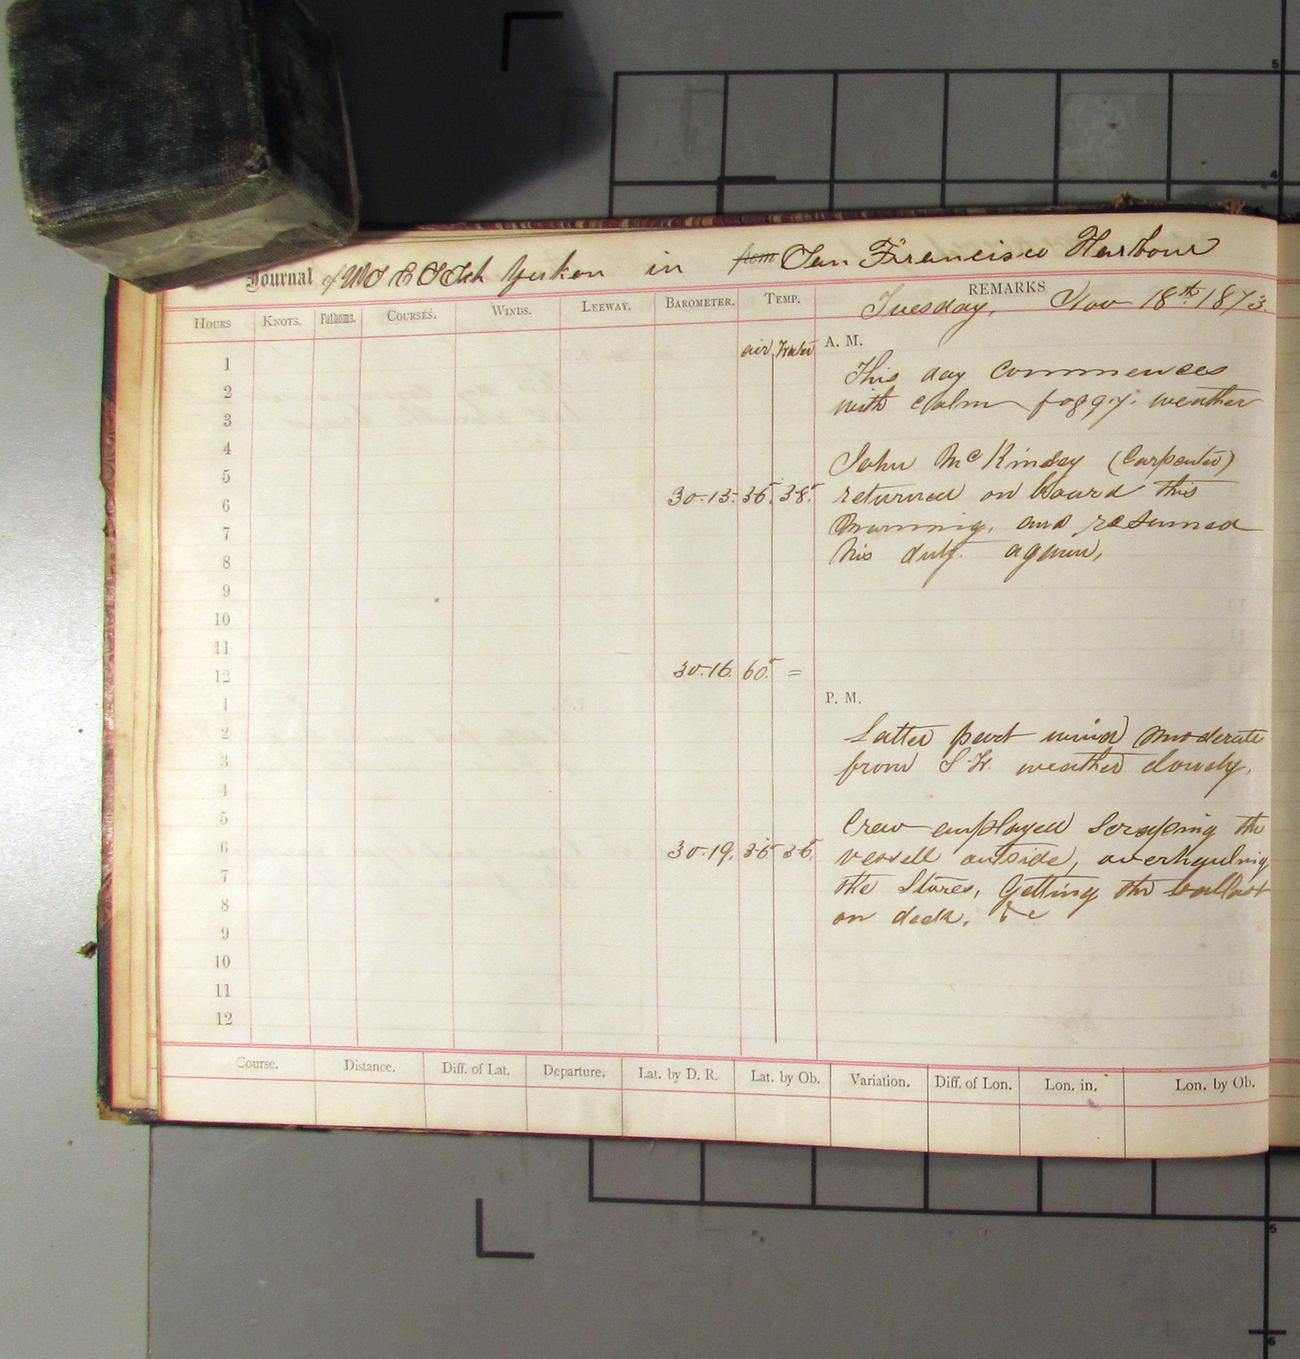 Journal of U S C S Sch Yukon in from San Francisco Harbour
REMARKS
Tuesday, Nov 18th 1873.
HOURS KNOTS. Fathoms. COURSES. WINDS. LEEWAY. BAROMETER. TEMP.
air Water A. M.
1
This day commences
2
with calm foggy. weather
3
4
John Mc Kinsey (Carpenter)
5
6 30.15. 35. 38. returned on board this
7 morning, and resumed
8 his duty. again,
9
10
11
12 30.16. 60. =
1 P. M.
2 Latter part wind moderate
3 from S.W. weather cloudy.
4
5 Crew employed Scraping the
6 30.19. 55 56. vessell outside, overhauling
7 the Stores, Getting the ballast
8 on deck. &c
9
10
11
12
Course. Distance. Diff. of Lat. Departure. Lat. by D. R. Lat. by Ob. Variation. Diff. of Lon. Lon. in. Lon. by Ob.
5
4
5
6